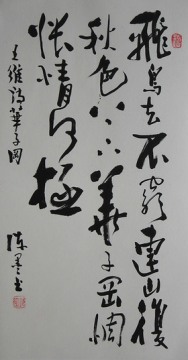 飛鳥去不窮連山復
秋色上下華子岡惆
悵情何極
王維詩華子岡
陳墨书